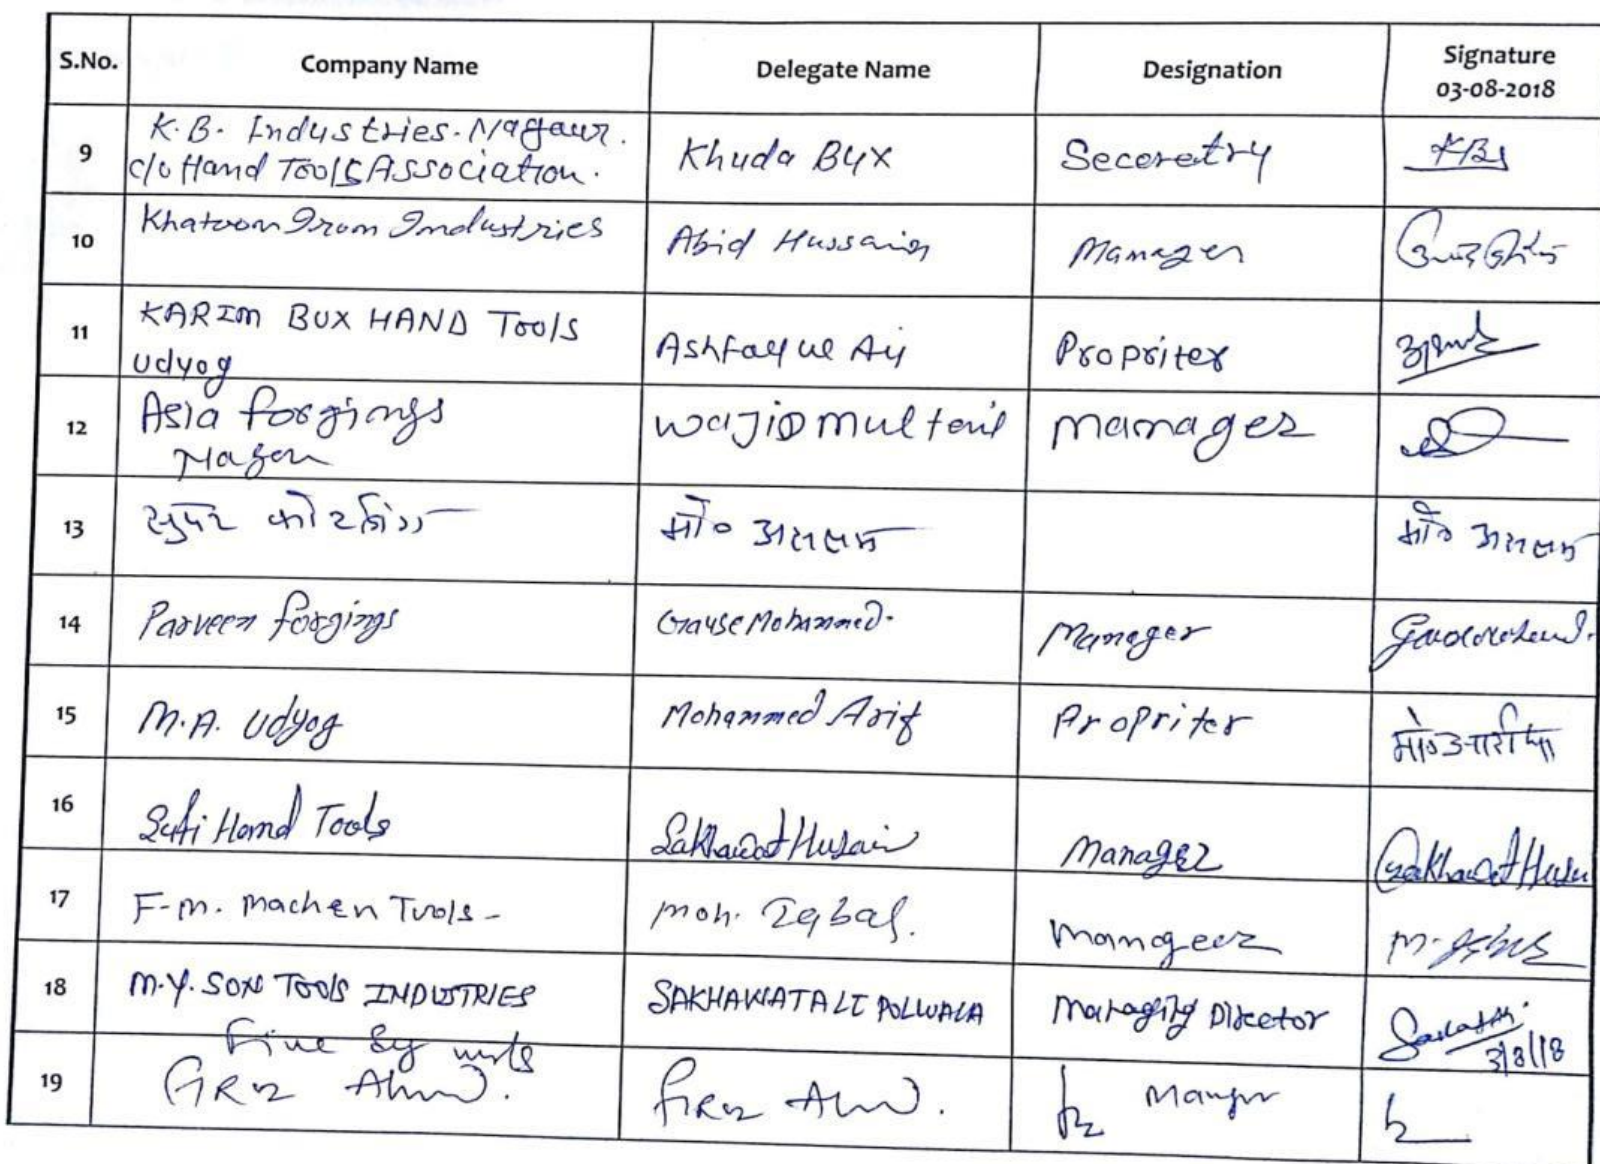 S.No. Company Name Delegate Name Designation Signature
03-08-2018
9 K.B. Industries. Nagaur. Khuda Bux Seceretry KBs
c/o Hand Tools Association.
10 Khatoon Irum Industries Abid Hussain Manager
11 KARIM BUX HAND Tools Ashfaque Ali Propriter
udyog
12 Asia forgings Wajid multani manager
13 सुपर मो० असलम मो० असलम
14 Parveen forgings Gause Mohammed. Manager
15 M.A. Udyog Mohammed Arif Propriter मो० आरीफ
16 Hand Tools Sakhawat Husain Manager Sakhawat Husain
17 F.m. machen Tools - moh. Iqbal. mangeer M. Iqbal
18 M.Y. SON TOOLS INDUSTRIES SAKHAWAT ALI POLWALA Managing Director
3/8/18
Fine
19